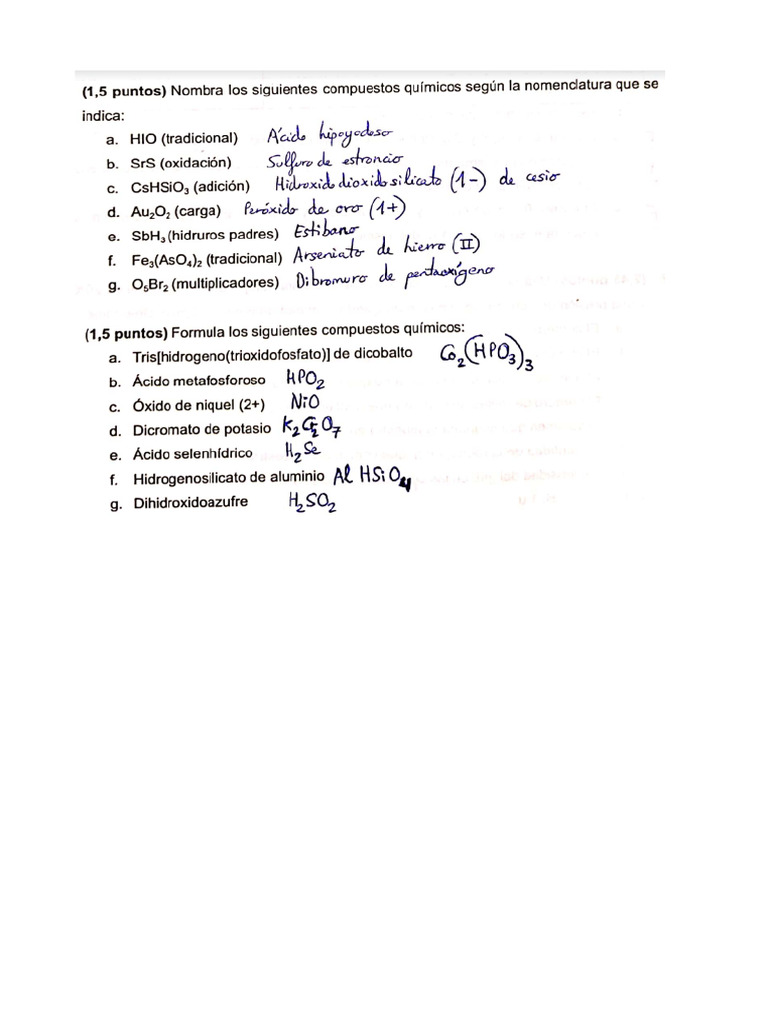 (1,5 puntos) Nombra los siguientes compuestos químicos según la nomenclatura que se
indica:
a. HIO (tradicional) Ácido hipoyodoso
b. SrS (oxidación) Sulfuro de estroncio
c. CsHSiO₃ (adición) Hidroxidodioxidosilicato (1-) de cesio
d. Au₂O₂ (carga) Peróxido de oro (1+)
e. SbH₃ (hidruros padres) Estibano
f. Fe₃(AsO₄)₂ (tradicional) Arseniato de hierro (II)
g. O₅Br₂ (multiplicadores) Dibromuro de pentaoxígeno
(1,5 puntos) Formula los siguientes compuestos químicos:
a. Tris[hidrogeno(trioxidofosfato)] de dicobalto Co₂(HPO₃)₃
b. Ácido metafosforoso HPO₂
c. Óxido de niquel (2+) NiO
d. Dicromato de potasio K₂Cr₂O₇
e. Ácido selenhídrico H₂Se
f. Hidrogenosilicato de aluminio AlHSiO₄
g. Dihidroxidoazufre H₂SO₂